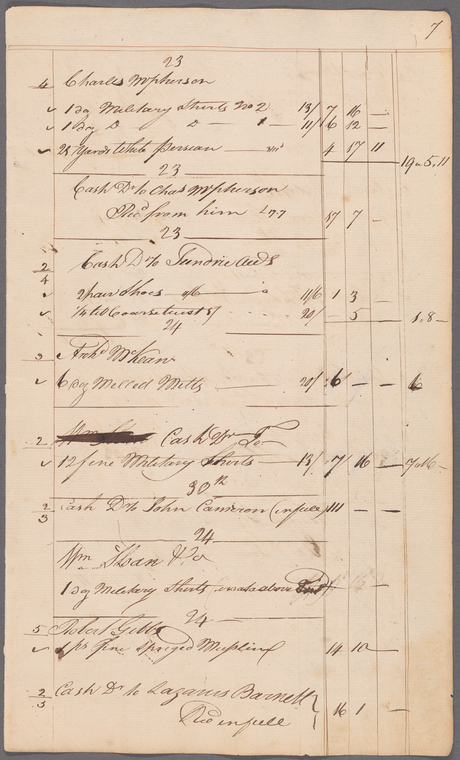 7
23
4 Charles Mcpherson
1 dz Military Shirts No 2 13/ 7 16 —
1 Dz D D 1 — 11/ 6 12 —
28 Yards White Persian — 4 17 11
19 " 5 . 11
23
Cash Dr to Chas Mcpherson
Recd from him 17 7 —
23
2/4 Cash Dr to Sundrie
2 pair Shoes — 11/6 — 11/6 1 3 —
1/4 lb Coarse 20/ — 5 —
1 . 8 —
24
3 McKean
6 dz Milled Mitts — 20/ 6 — — 6
2 Cash Dr To
12 fine Military Shirts — 13/ 7 16 — 7 " 16 —
30th
2/3 Cash Dr to John Cameron (in full) 111 — —
24
Wm Sloan & Co
1 dz Military Shirts above
24
5 Robert Gibb
1 ps fine Spriged Muslin 14 10 —
2/3 Cash Dr to Lazarus Barnett
Rec in full 16 1 —